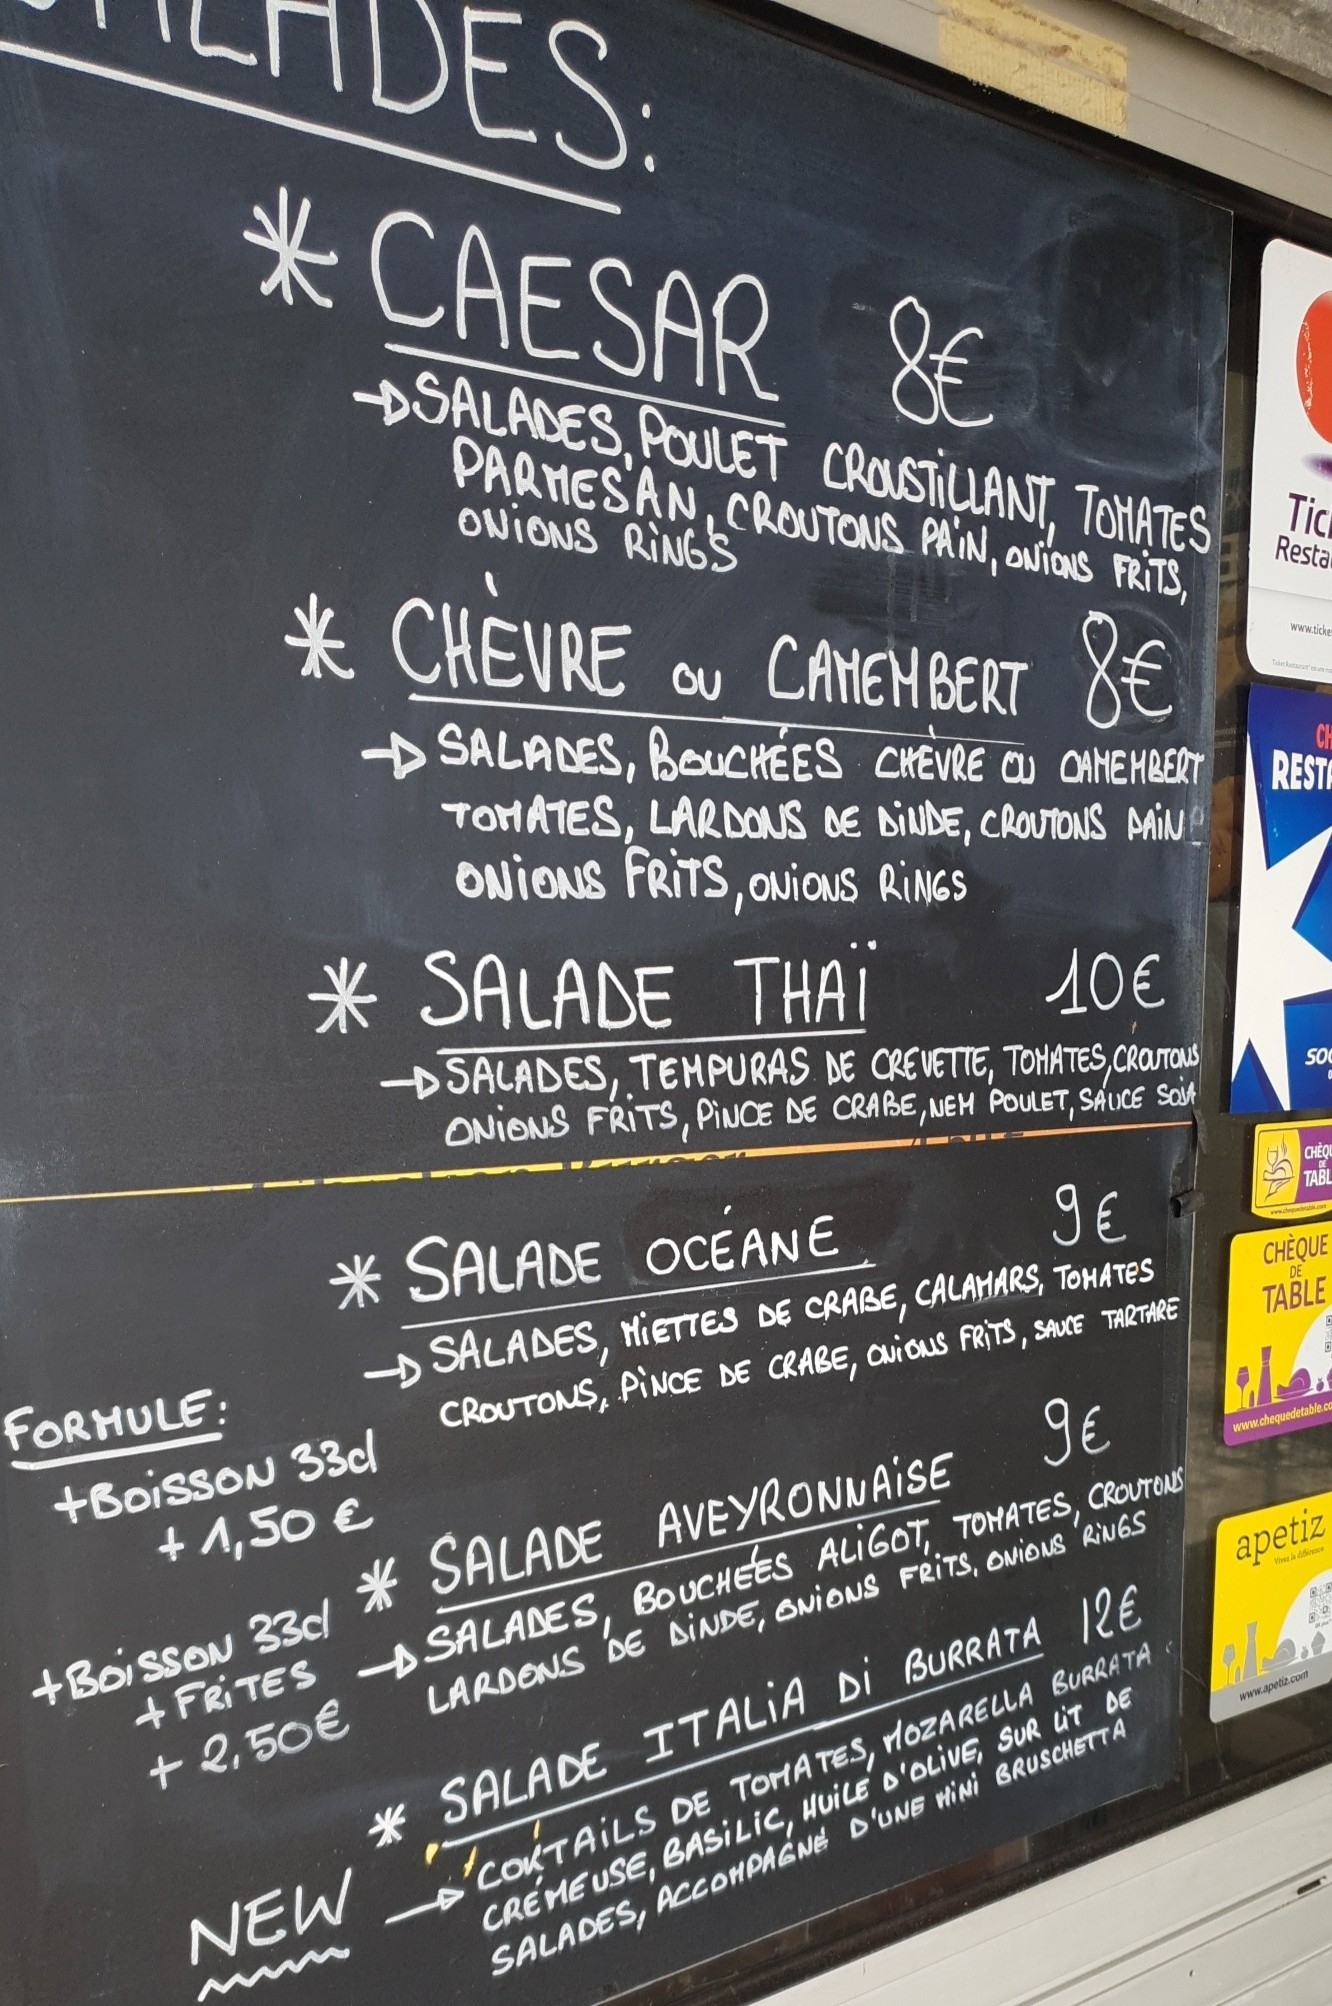 SALADES:
* CAESAR 8€
SALADES, POULET CROUSTILLANT, TOMATES
PARMESAN, CROUTONS PAIN, ONIONS FRITS,
ONIONS RINGS
* CHÈVRE OU CAMEMBERT 8€
SALADES, BOUCHÉES CHÈVRE OU CAMEMBERT
TOMATES, LARDONS DE DINDE, CROUTONS PAIN
ONIONS FRITS, ONIONS RINGS
* SALADE THAÏ 10€
SALADES, TEMPURAS DE CREVETTE, TOMATES, CROUTONS
ONIONS FRITS, PINCE DE CRABE, NEM POULET, SAUCE SOJA
* SALADE OCÉANE 9€
SALADES, MIETTES DE CRABE, CALAMARS, TOMATES
CROUTONS, PINCE DE CRABE, ONIONS FRITS, SAUCE TARTARE
* SALADE AVEYRONNAISE 9€
SALADES, BOUCHÉES ALIGOT, TOMATES, CROUTONS
LARDONS DE DINDE, ONIONS FRITS, ONIONS RINGS
* SALADE ITALIA DI BURRATA 12€
COKTAILS DE TOMATES, MOZARELLA BURRATA
CRÉMEUSE, BASILIC, HUILE D'OLIVE, SUR LIT DE
SALADES, ACCOMPAGNÉ D'UNE MINI BRUSCHETTA
NEW
FORMULE:
+BOISSON 33cl
+ 1,50 €
+BOISSON 33cl
+ FRITES
+ 2,50€
Tic
Resta
www.ticke
CH
REST
SOC
CHÈQU
DE
TABL
CHÈQUE
DE
TABLE
www.chequedetable.co
apetiz
Vivez la différence
www.apetiz.com